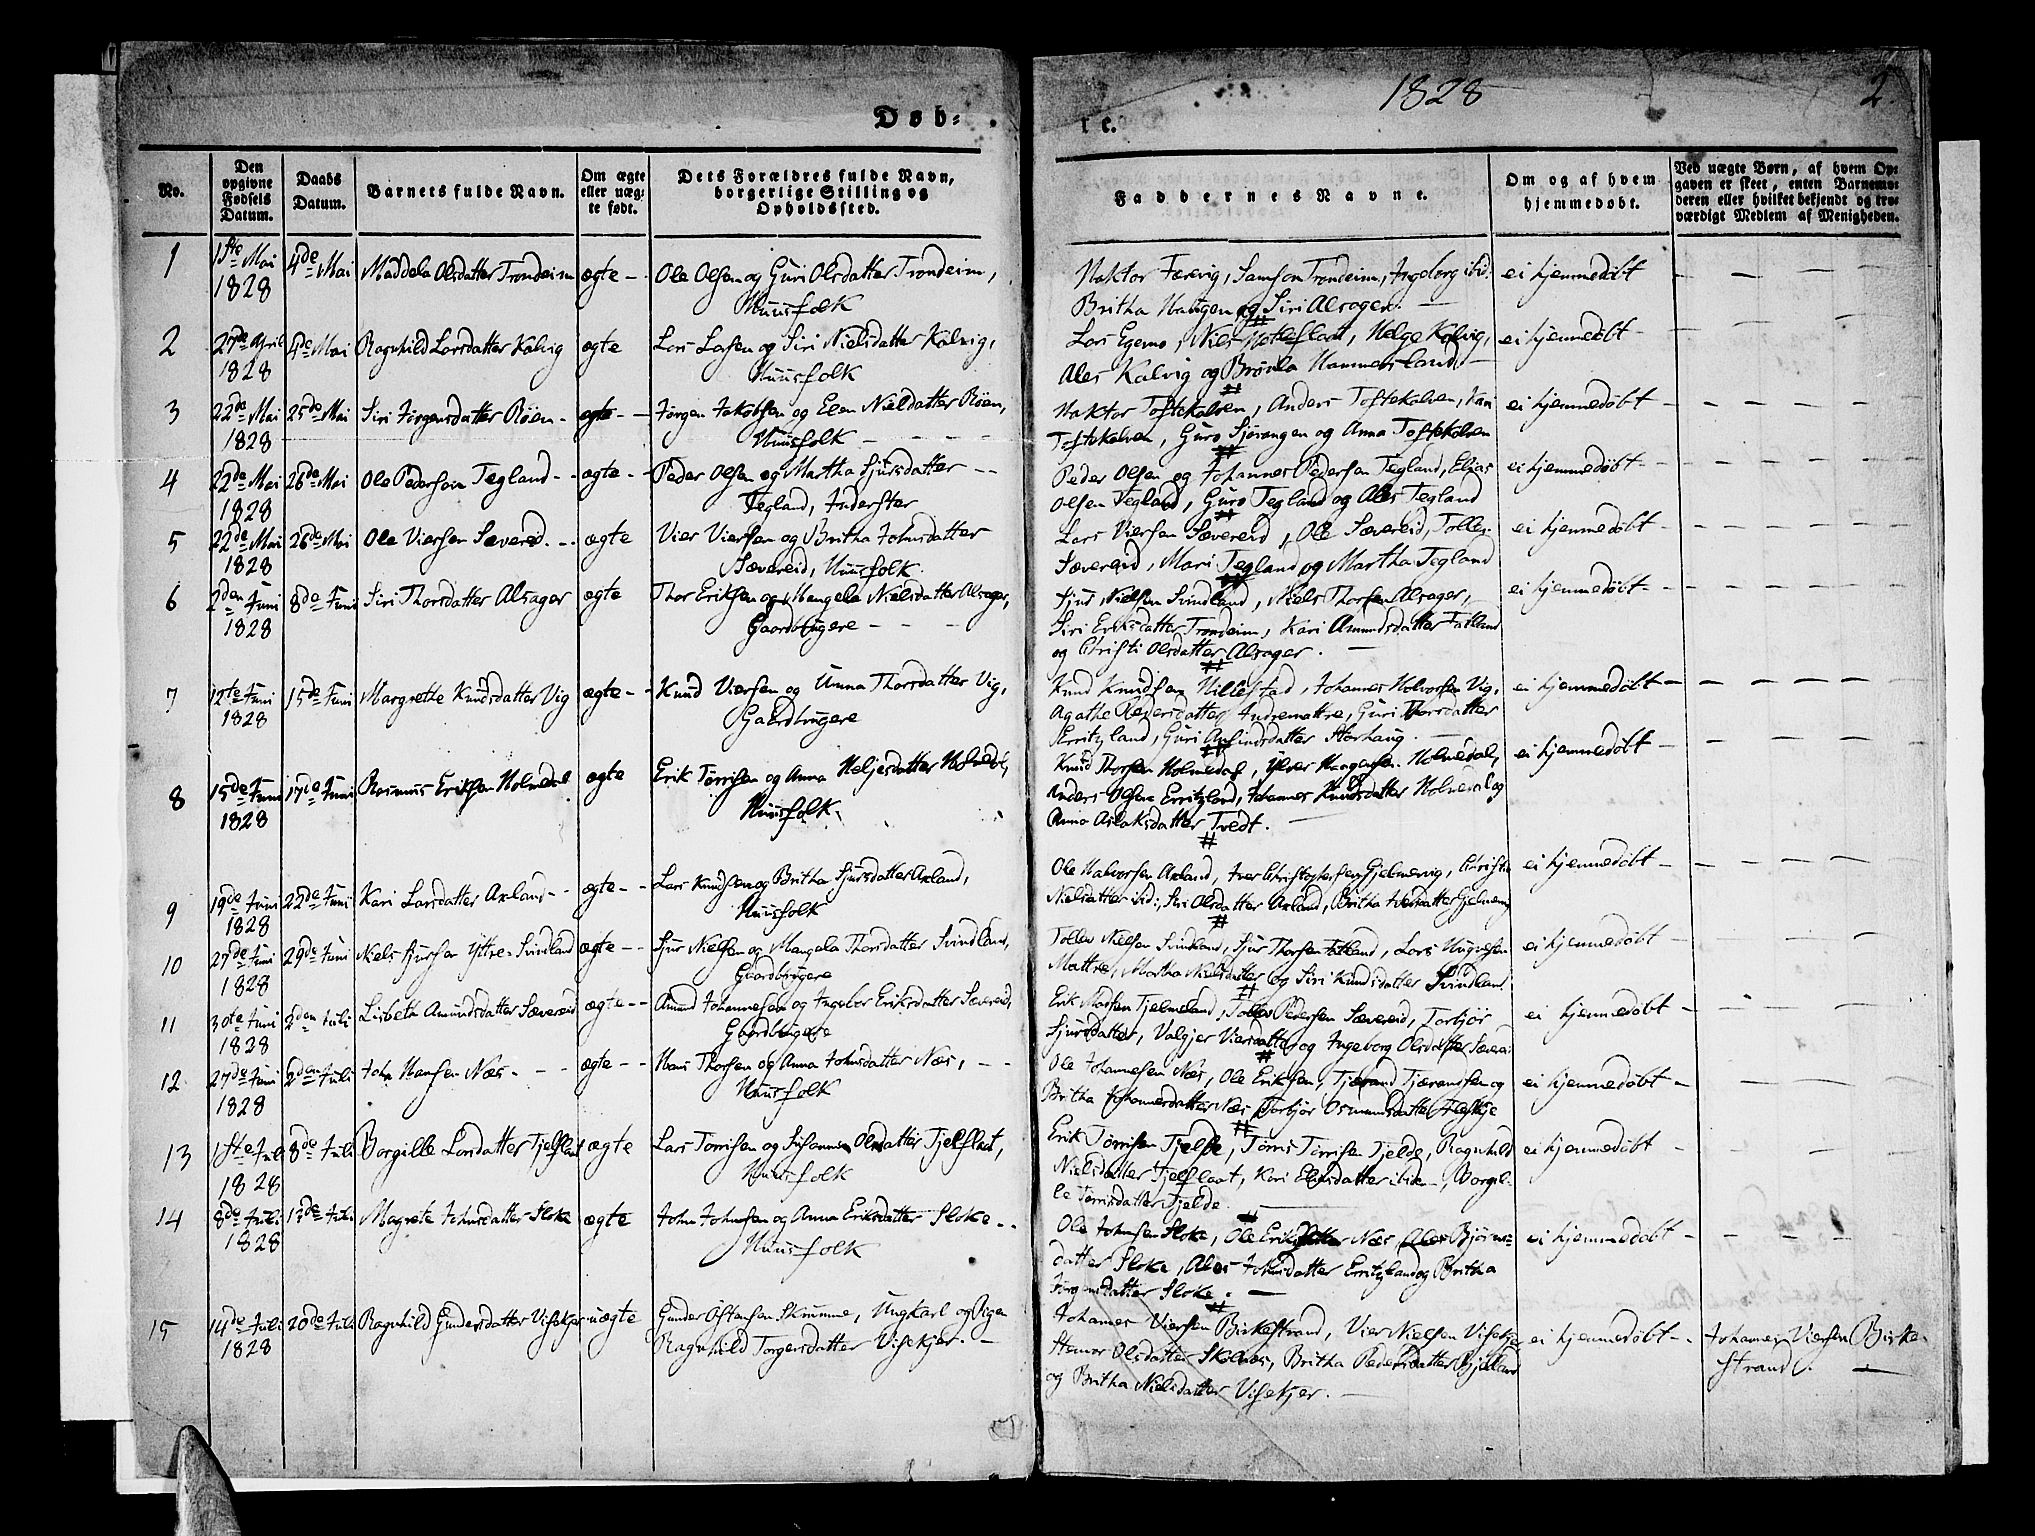 1828
2.
Døb-
te.
No.
Den opgivne Fødsels Datum.
Daabs Datum.
Barnets fulde Navn.
Om ægte eller uægte født.
Dets Forældres fulde Navn, borgerlige Stilling og Opholdssted.
Faddernes Navne.
Om og af hvem hjemmedøbt.
Ved uægte Børn, af hvem Opgaven er skeet, enten Barnemoderen eller hvilket bekjendt og troværdigt Medlem af Menigheden.
1 1ste Mai 4de Mai Maddela Olsdatter Trondeim ægte Ole Olsen og Guri Olsdatter Trondeim,
1828 Huusfolk
Haktor Farevig, Samson Trondeim, Ingeborg ibid: ei hjemmedøbt
Britha Haugen og Siri Alsager.
2 27de April 4de Mai Ragnhild Larsdatter Kalvig ægte Lars Larsen og Siri Nielsdatter Kalvig,
1828 Huusfolk
Lars Egemo, Niels Hatleflaat, Helge Kalvig, ei hjemmedøbt
Ales Kalvig og Brønla Hammersland
3 22de Mai 25de Mai Siri Jørgensdatter Røen ægte Jørgen Jakobsen og Elen Nieldatter Røen,
1828 Huusfolk
Haktor Toftekalven, Anders Toftekalven, Kari ei hjemmedøbt
Toftekalven, Guro Sjøvangen og Anna Toftekalven
4 22de Mai 26de Mai Ole Pedersen Tegland ægte Peder Olsen og Martha Sjursdatter
1828 Tegland, Inderster
Peder Olsen og Johannes Pedersen Tegland, Elias ei hjemmedøbt
Olsen Tegland, Guro Tegland og Ales Tegland
5 22de Mai 26de Mai Ole Viersen Sævereid ægte Vier Viersen og Britha Johnsdatter
1828 Sævereid, Huusfolk
Lars Viersen Sævereid, Ole Sævereid, Tollev ei hjemmedøbt
Sævereid, Mari Tegland og Martha Tegland
6 2den Juni 8de Juni Siri Thorsdatter Alsager ægte Thor Eriksen og Mangela Nielsdatter Alsager,
1828 Gaardbrugere
Sjur Nielsen Svindland, Niels Thorsen Alsager, ei hjemmedøbt
Siri Eriksdatter Trondeim, Kari Amundsdatter Fatland
og Christi Olsdatter Alsager.
7 12te Juni 15de Juni Margrette Knudsdatter Vig ægte Knud Viersen og Unna Thorsdatter Vig,
1828 Gaardbrugere
Knud Knudsen Hillestad, Johannes Halvorsen Vig, ei hjemmedøbt
Agathe Pedersdatter Indremattre, Guri Thorsdatter
Erritzland, Guri Anfindsdatter Storhaug.
8 15de Juni 17de Juni Rasmus Eriksen Holmedal ægte Erik Tørrisen og Anna Heljesdatter Holmedal,
1828 Huusfolk.
Knud Thorsen Holmedal, Ylver Haagensen Holmedal, ei hjemmedøbt
Anders Olsen Erritzland, Johannes Knudsdatter Holmedal og
Anna Aslaksdatter Tvedt.
9 19de Juni 22de Juni Kari Larsdatter Axland ægte Lars Knudsen og Britha Sjursdatter Axland,
1828 Huusfolk
Ole Halvorsen Axland, Iver Christophersen Gjelmervig, Christi ei hjemmedøbt
Nielsdatter ibid:, Siri Olsdatter Axland, Britha Iversdatter Gjelmervig
10 27de Juni 29de Juni Niels Sjursen Yttre-Svindland ægte Sjur Nielsen og Mangela Thorsdatter Svindland,
1828 Gaardbrugere
Tollev Nielsen Svindland, Sjur Thorsen Fatland, Lars Ungvesen ei hjemmedøbt
Mattre, Martha Nielsdatter og Siri Knudsdatter Svindland
11 30te Juni 2den Juli Lisbeth Amundsdatter Sævereid ægte Amund Johannesen og Ingebor Eriksdatter Sævereid,
1828 Gaardbrugere
Erik Madsen Tjelmeland, Tollev Pedersen Sævereid, Torbjør ei hjemmedøbt
Sjursdatter, Valgjer Viersdatter og Ingeborg Olsdatter Sæverei
12 27de Juni 2den Juli John Hansen Næs ægte Hans Thorsen og Anna Johnsdatter Næs,
1828 Huusfolk
Ole Johannesen Næs, Ole Eriksen, Tjærand Tjæransen og ei hjemmedøbt
Britha Johannesdatter Næs, Torbjør Osmundsdatter Fleskje
13 1ste Juli 8de Juli Borgille Larsdatter Tjelflaat ægte Lars Tørrisen og Johanna Olsdatter Tjelflaat,
1828 Huusfolk
Erik Tørrisen Tjelfle, Tørris Tørrisen Fjelde, Ragnhild ei hjemmedøbt
Nielsdatter Tjelflaat, Kari Elisdatter ibid-, Borgil-
le Tørrisdatter Fjelde.
14 8de Juli 13de Juli Magrete Johnsdatter Sloke ægte John Johnsen og Anna Eriksdatter Sloke
1828 Huusfolk
Ole Johnsen Sloke, Ole Eriksen Næs, Ales Bjørns- ei hjemmedøbt
datter Sloke, Ales Johnsdatter Erritzland og Britha
Jørgensdatter Sloke.
15 14de Juli 20de Juli Ragnhild Gundersdatter Visekjer uægte Gunder Østensen Skrumme, Ungkarl og Pigen
1828 Ragnhild Torgersdatter Visekjer.
Johannes Viersen Birkestrand, Vier Nielsen Visekje ei hjemmedøbt Johannes Viersen Birke-
Steinvor Olsdatter Skolnes, Britha Pedersdatter Bjelland strand.
og Britha Nielsdatter Visekjer.